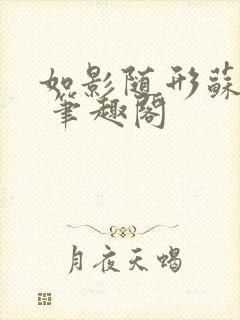 如影随形蘇
筆趣閣
月夜天蝎